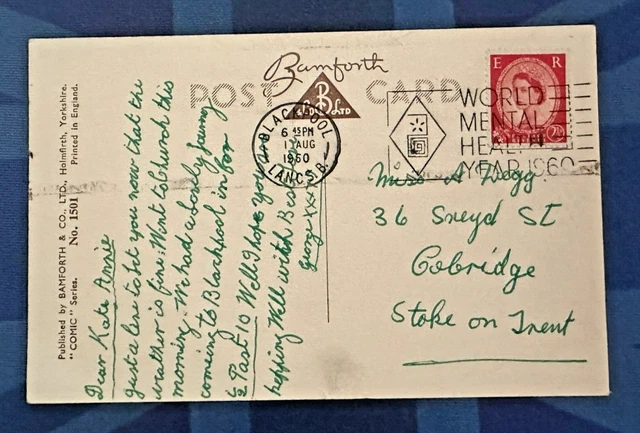 Published by BAMFORTH & CO., LTD., Holmfirth, Yorkshire.
"COMIC" Series. No. 1501 Printed in England.
Bamforth
POST CARD
B
LTD
BLACKPOOL
6 45 PM
1 AUG
1960
LANCS. B.
WORLD
MENTAL
HEALTH
YEAR 1960
E R
2½D
Dear Kate Annie
Just a line to let you now that the
weather is fine: Went to Church this
morning. We had a lovely
coming to Blackpool in for
½ Past 10 Well I hope you are
keeping Well with Best
George xxx
Miss A
36 Sneyd St
Cobridge
Stoke on Trent